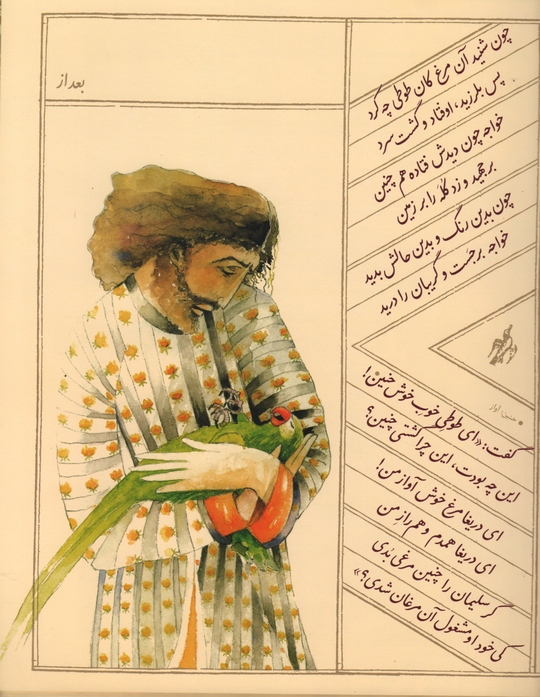 بعد از
چون شنید آن مرغ کان طوطی چه کرد
پس بلرزید، اوفتاد و گشت سرد
خواجه چون دیدش فتاده هم چنین
برجهید و زد کُلَه را بر زمین
چون بدین رنگ و بدین حالش بدید
خواجه برجَست و گریبان را درید
گفت: «ای طوطی خوب خوش حَنین!
این چه بودت، این چرا گشتی چنین؟
ای دریغا مرغ خوش آواز من!
ای دریغا همدم و هم راز من
گر سلیمان را چنین مرغی بُدی
کی خود او مشغول آن مرغان شدی؟»